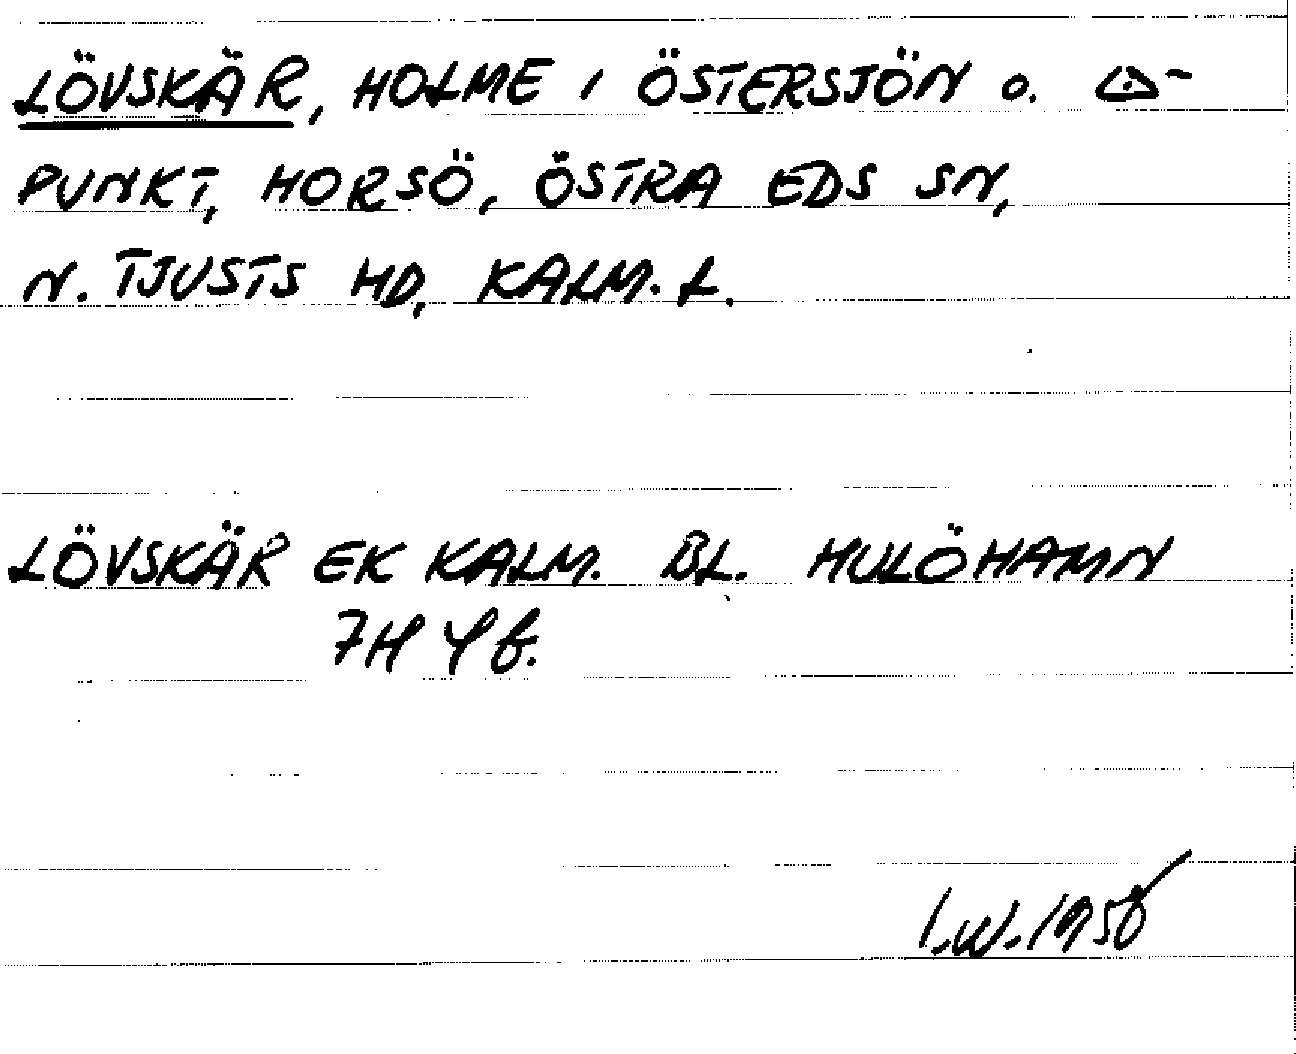 LÖVSKÄR, HOLME I ÖSTERSJÖN O. ⟁-
PUNKT, HORSÖ, ÖSTRA EDS SN,
N. TJUSTS HD, KALM. L.
LÖVSKÄR EK KALM. BL. HULÖHAMN
7H
I.W. 195